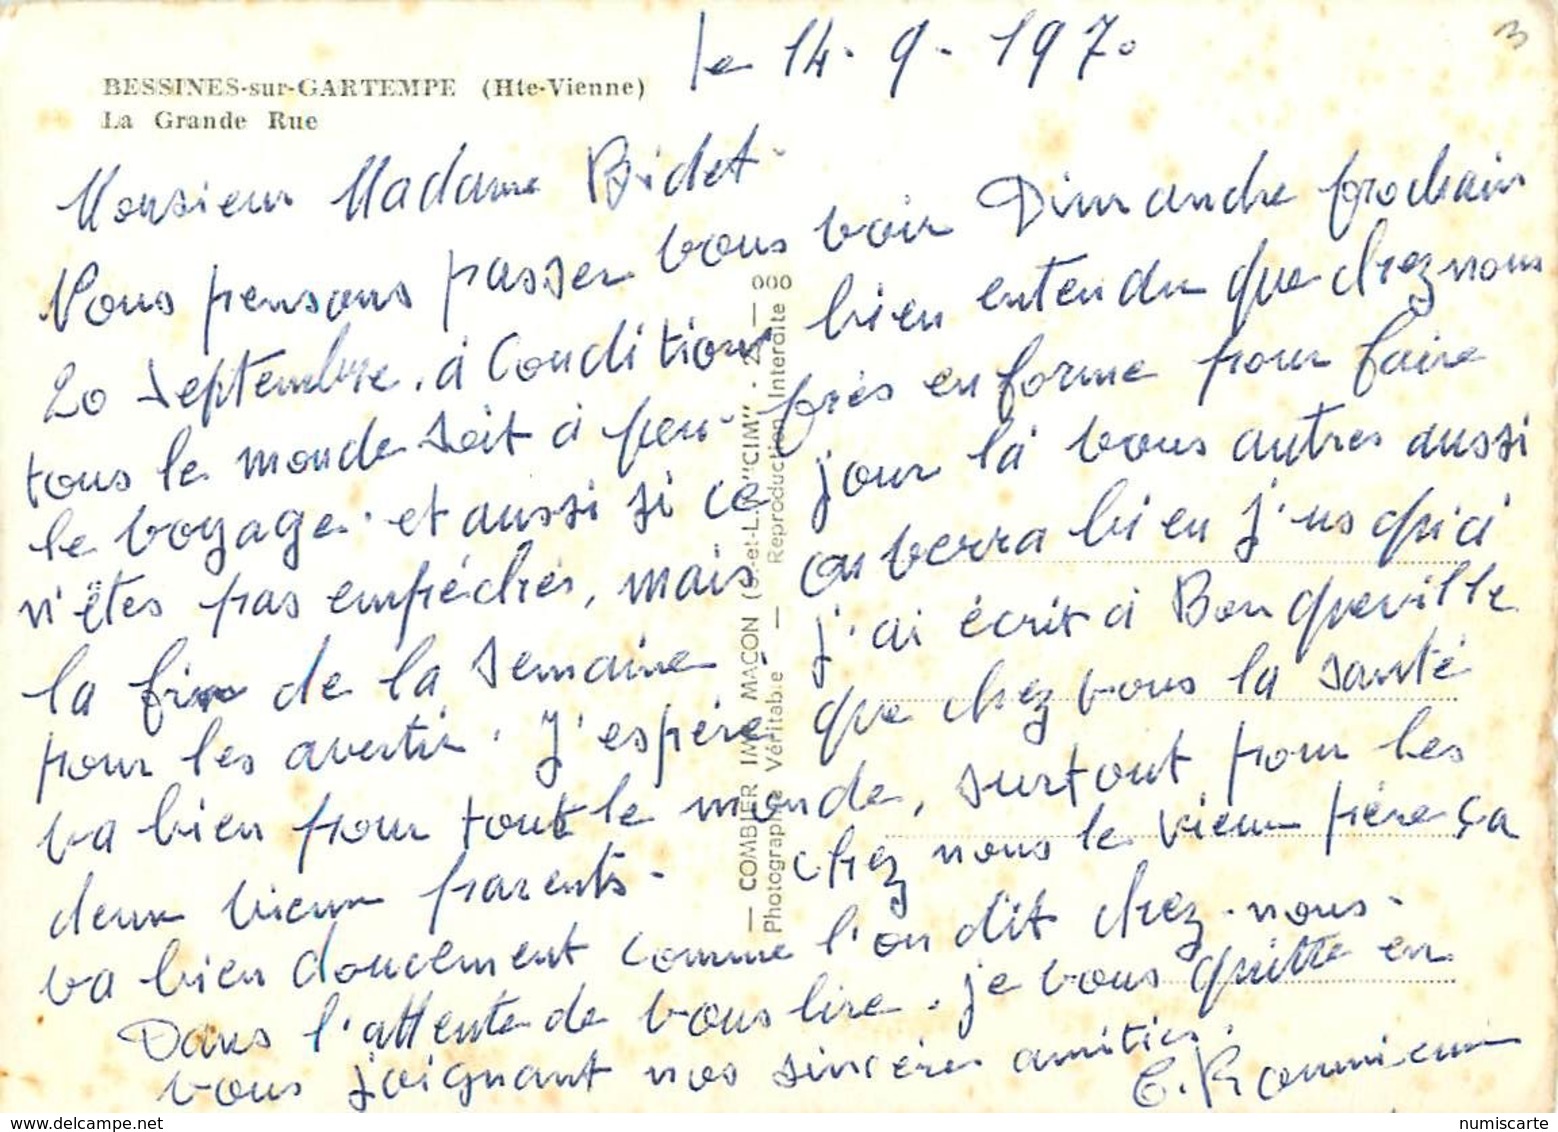 BESSINES-sur-GARTEMPE (Hte-Vienne)
La Grande Rue
le 14-9-1970
3
Monsieur Madame Bidet
Nous pensons passer vous voir Dimanche prochain
20 Septembre, à condition bien entendu que chez nous
tous le monde soit à peu-près en forme pour faire
le voyage. et aussi si ce jour là vous autres aussi
n'êtes pas empéchés, mais on verra bien j'usqu'ici
la fin de la semaine. j'ai écrit à Bonqueville
pour les avertir. J'espère que chez vous la santé
va bien pour tout le monde, surtout pour les
deux vieux parents. chez nous le vieux père ça
va bien doucement comme l'on dit chez-nous.
Dans l'attente de vous lire. je vous quitte en
vous joignant nos sincères amitiés.
— COMBIER IMP. MACON (S.-et-L.) "CIM" - 2 — 000
Photographie Véritable — Reproduction Interdite
https://www.delcampe.net
numiscarte